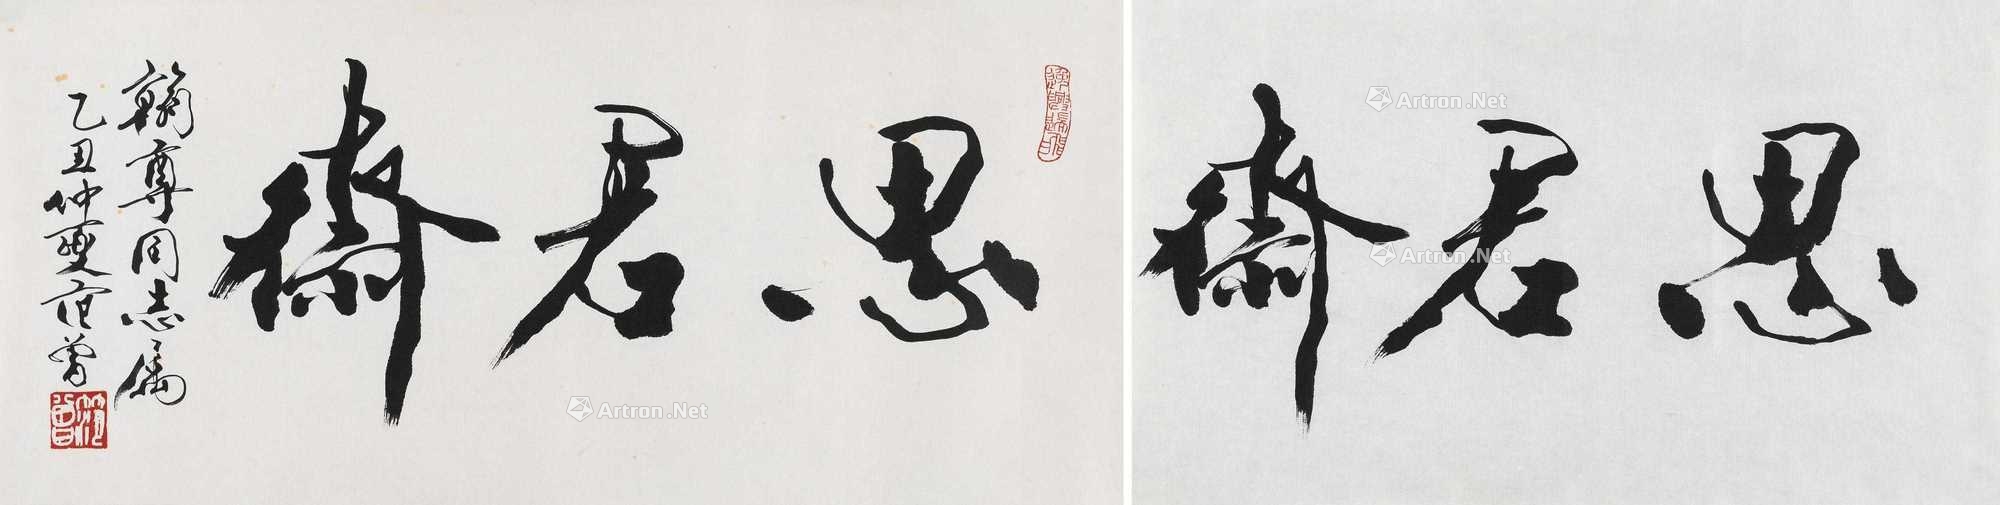 思君斋
翰尊同志属
乙丑仲夏范曾
范曾
思君斋
Artron.Net
Artron.Net
Artron.Net